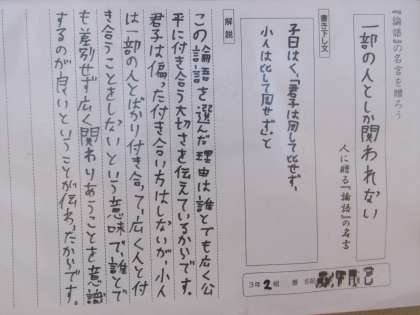 『論語』の名言を贈ろう
一部の人としか関われない
人に贈る『論語』の名言
書き下し文
子曰はく、「君子は周して比せず、
小人は比して周せず。」と
解説
この論語を選んだ理由は誰とでも広く公
平に付き合う大切さを伝えているからです。
君子は偏った付き合い方はしないが、小人
は一部の人とばかり付き合って、広く人と付
き合うことをしないという意味で、誰とで
も差別せず広く関わりあうことを意識
するのが良いということが伝わったからです。
3年2組 番 名前